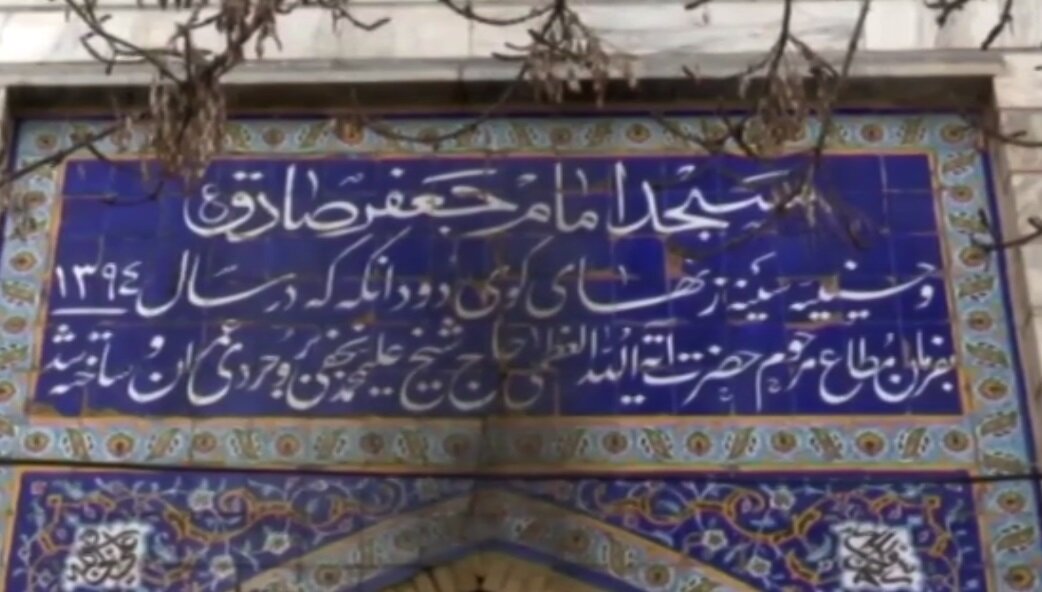 مسجد امام جعفر صادق ع
و حسینیه سینه زنهای کوی دودانگه که در سال ۱۳۹٤
بفرمان مطاع مرحوم حضرت آیة الله العظمی حاج شیخ علیمحمد نجفی بروجردی عمران و ساخته شد